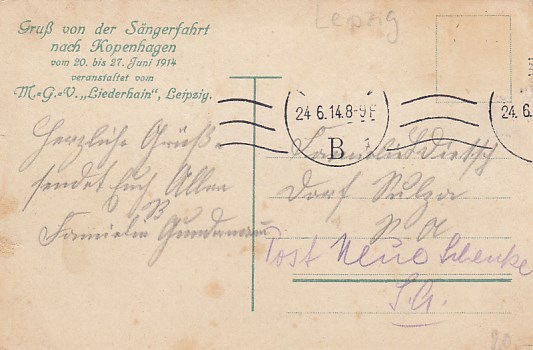 Gruß von der Sängerfahrt
nach Kopenhagen
vom 20. bis 27. Juni 1914
veranstaltet vom
M.=G.=V. „Liederhain", Leipzig.
Leipzig
24.6.14.8-9F
B
24.6.
Herzliche Grüße
sendet Euch Allen
Familie Gundermann
Familie Dietsch
Dorf Sulza
Post Neue Schenke
S.A.